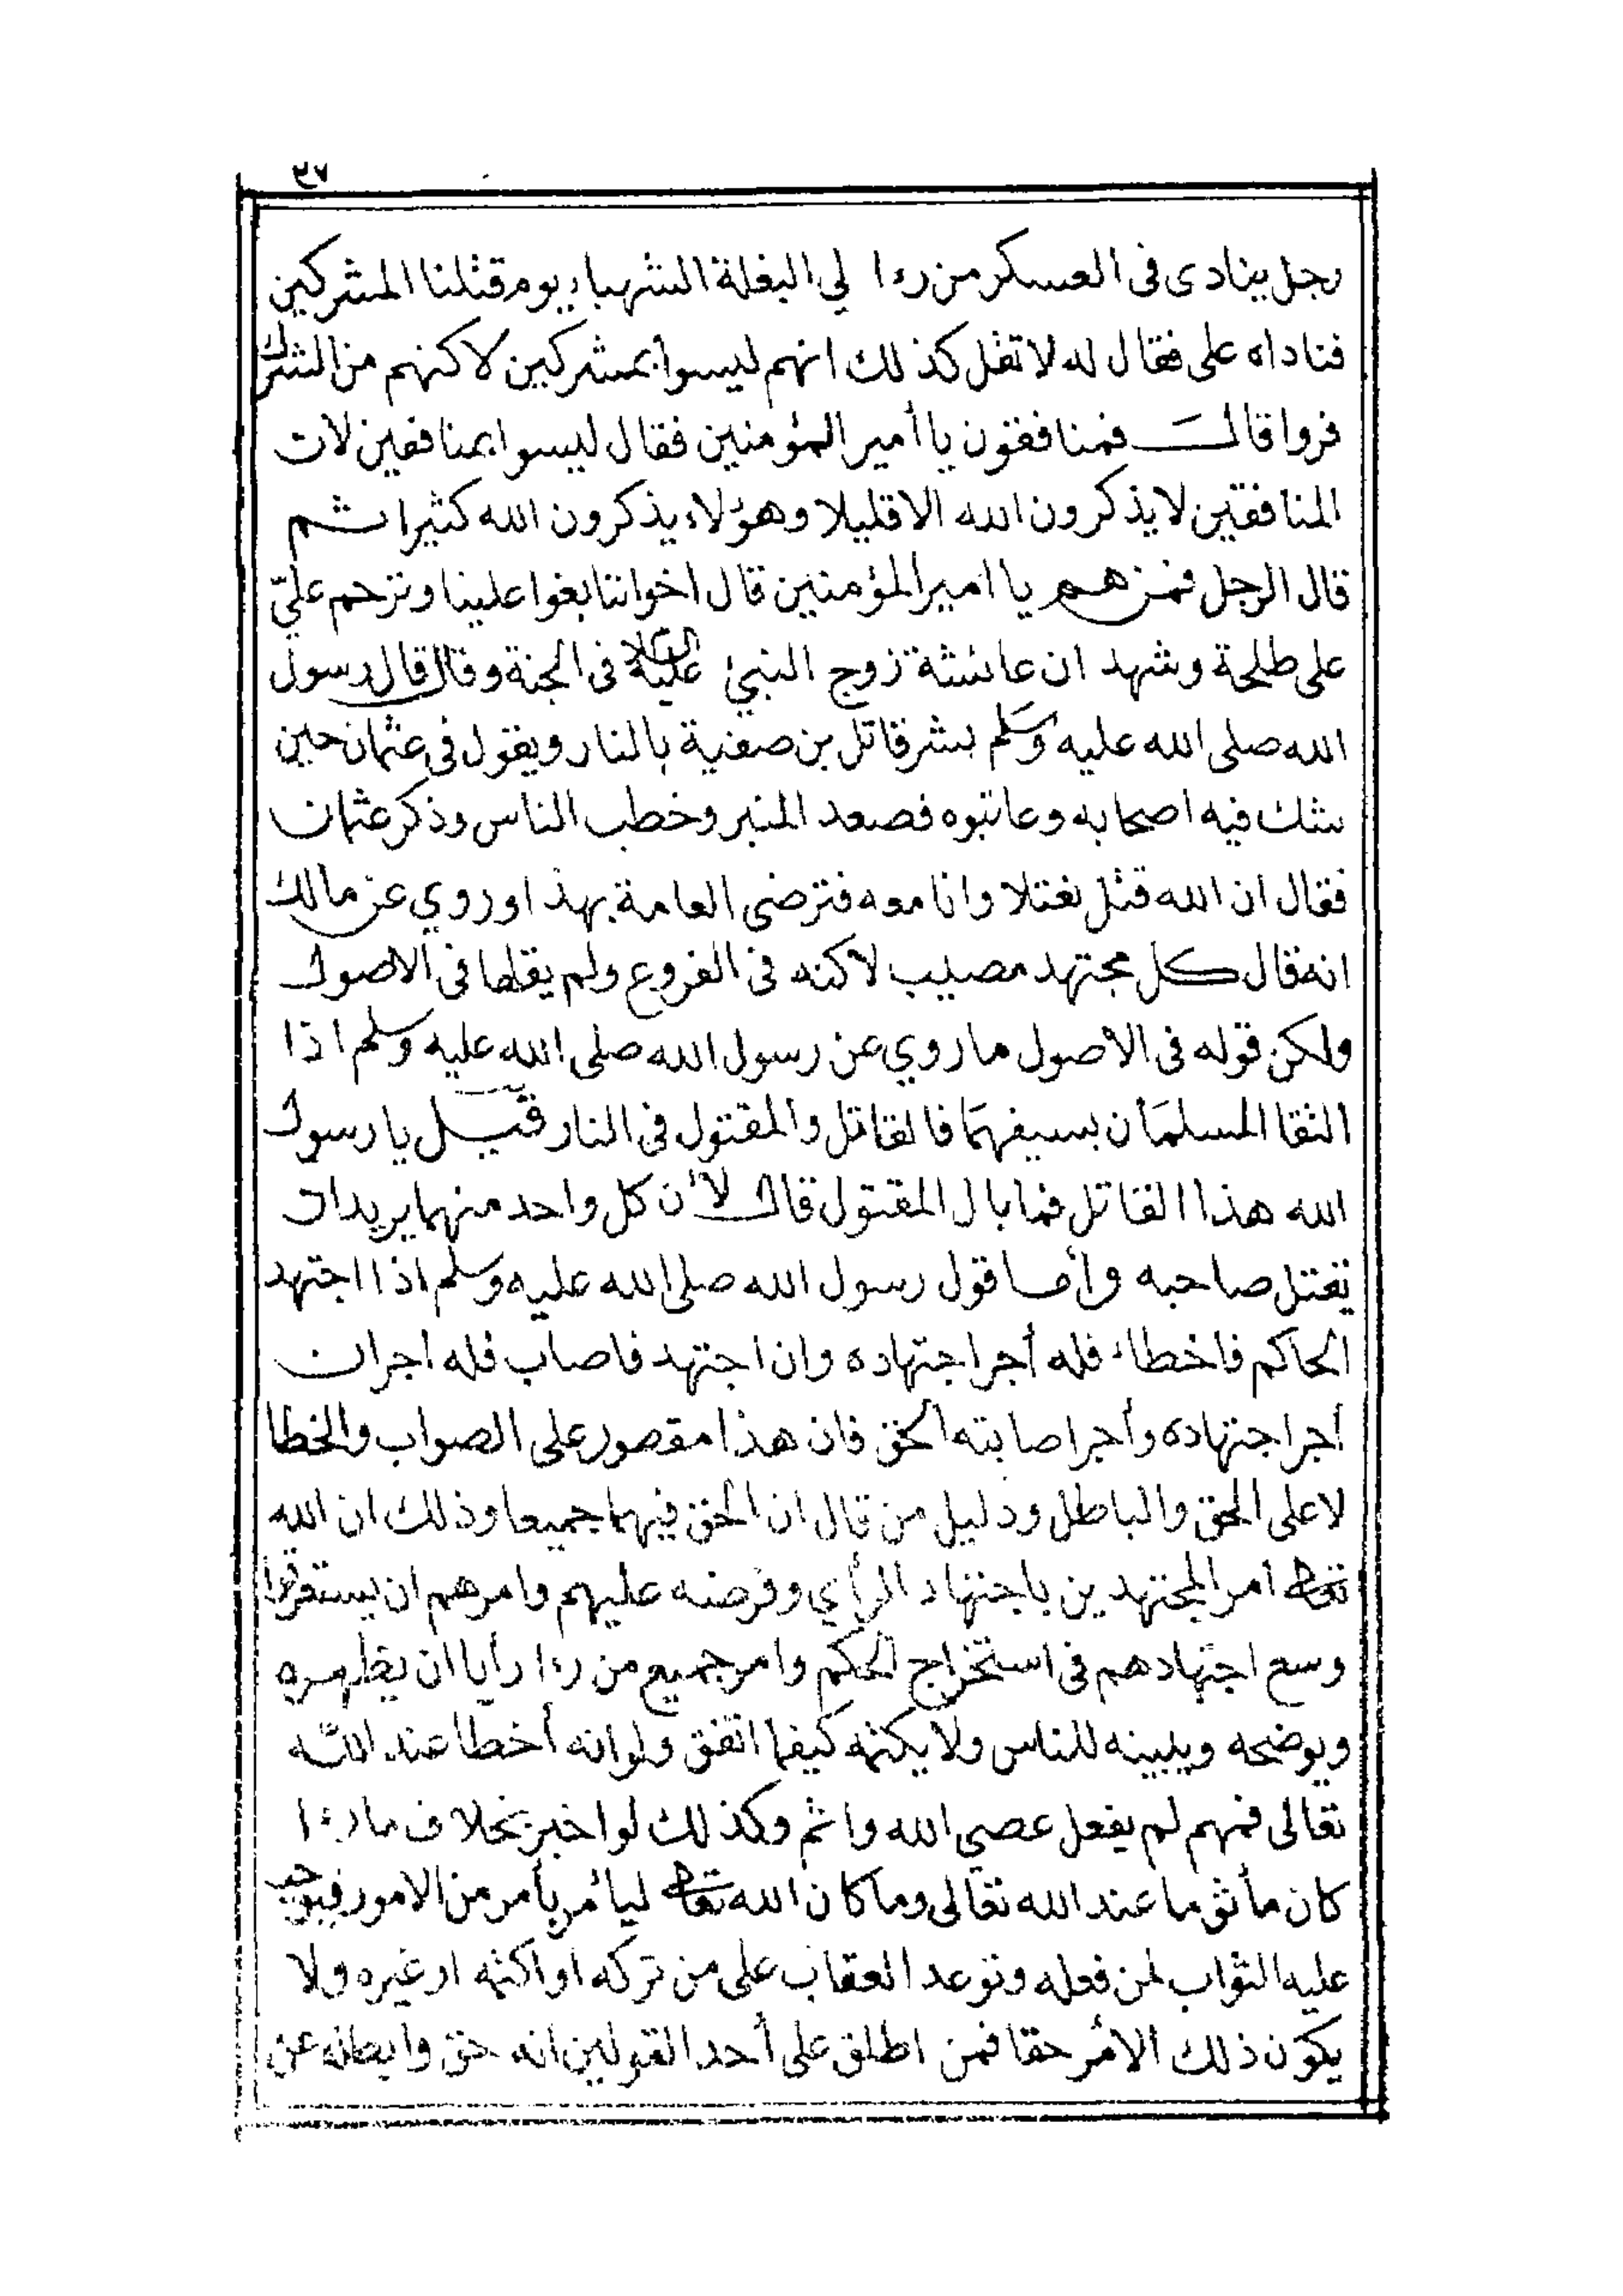 ٣٧
رجل ينادى فى العسكر من رءا لي البغلة الشهباء يوم قتلنا المشركين
فناداه على فقال له لا تقل كذلك انهم ليسوا بمشركين لاكنهم من الشرك
فروا قال فمنافقون يا أمير المؤمنين فقال ليسوا بمنافقين لان
المنافقين لا يذكرون الله الا قليلا وهؤلاء يذكرون الله كثيرا ثم
قال الرجل فمن هم يا امير المؤمنين قال اخواننا بغوا علينا وترحم عليّ
على طلحة وشهد ان عائشة زوج النبيئ عليه السلام فى الجنة وقال قال رسول
الله صلى الله عليه وسلم بشر قاتل بن صفية بالنار ويقول فى عثمان حين
شك فيه اصحابه وعاتبوه فصعد المنبر وخطب الناس وذكر عثمان
فقال ان الله قتل نعثلا وانا معه فترضى العامة بهذا وروي عن مالك
انه قال كل مجتهد مصيب لاكنه فى الفروع ولم يقلها فى الاصول
ولكن قوله فى الاصول ما روي عن رسول الله صلى الله عليه وسلم اذا
التقا المسلمان بسيفهما فالقاتل والمقتول فى النار قيل يا رسول
الله هذا القاتل فما بال المقتول قال لأن كل واحد منهما يريد ان
يقتل صاحبه وأما قول رسول الله صلى الله عليه وسلم اذا اجتهد
الحاكم فاخطاء فله أجر اجتهاده وان اجتهد فاصاب فله اجران
أجر اجتهاده وأجر اصابته الحق فان هذا مقصور على الصواب والخطا
لا على الحق والباطل ودليل من قال ان الحق فيهما جميعا وذلك ان الله
تعالى امر المجتهدين باجتهاد الرأي وفرضه عليهم وامرهم ان يستفرغوا
وسع اجتهادهم فى استخراج الحكم وامر جميع من رءا رأيا ان يظهره
ويوضحه ويبينه للناس ولا يكتمه كيفما اتفق ولو انه أخطأ عند الله
تعالى فمنهم لم يفعل عصى الله واثم وكذلك لو اخبر بخلاف ما رءا
كان مأثوما عند الله تعالى وما كان الله تعالى ليأمر بأمر من الامور فيوجب
عليه الثواب لمن فعله وتوعد العقاب على من تركه او اكتمه او غيره ولا
يكون ذلك الأمر حقا فمن اطلق على أحد القولين انه حق وابطله عن